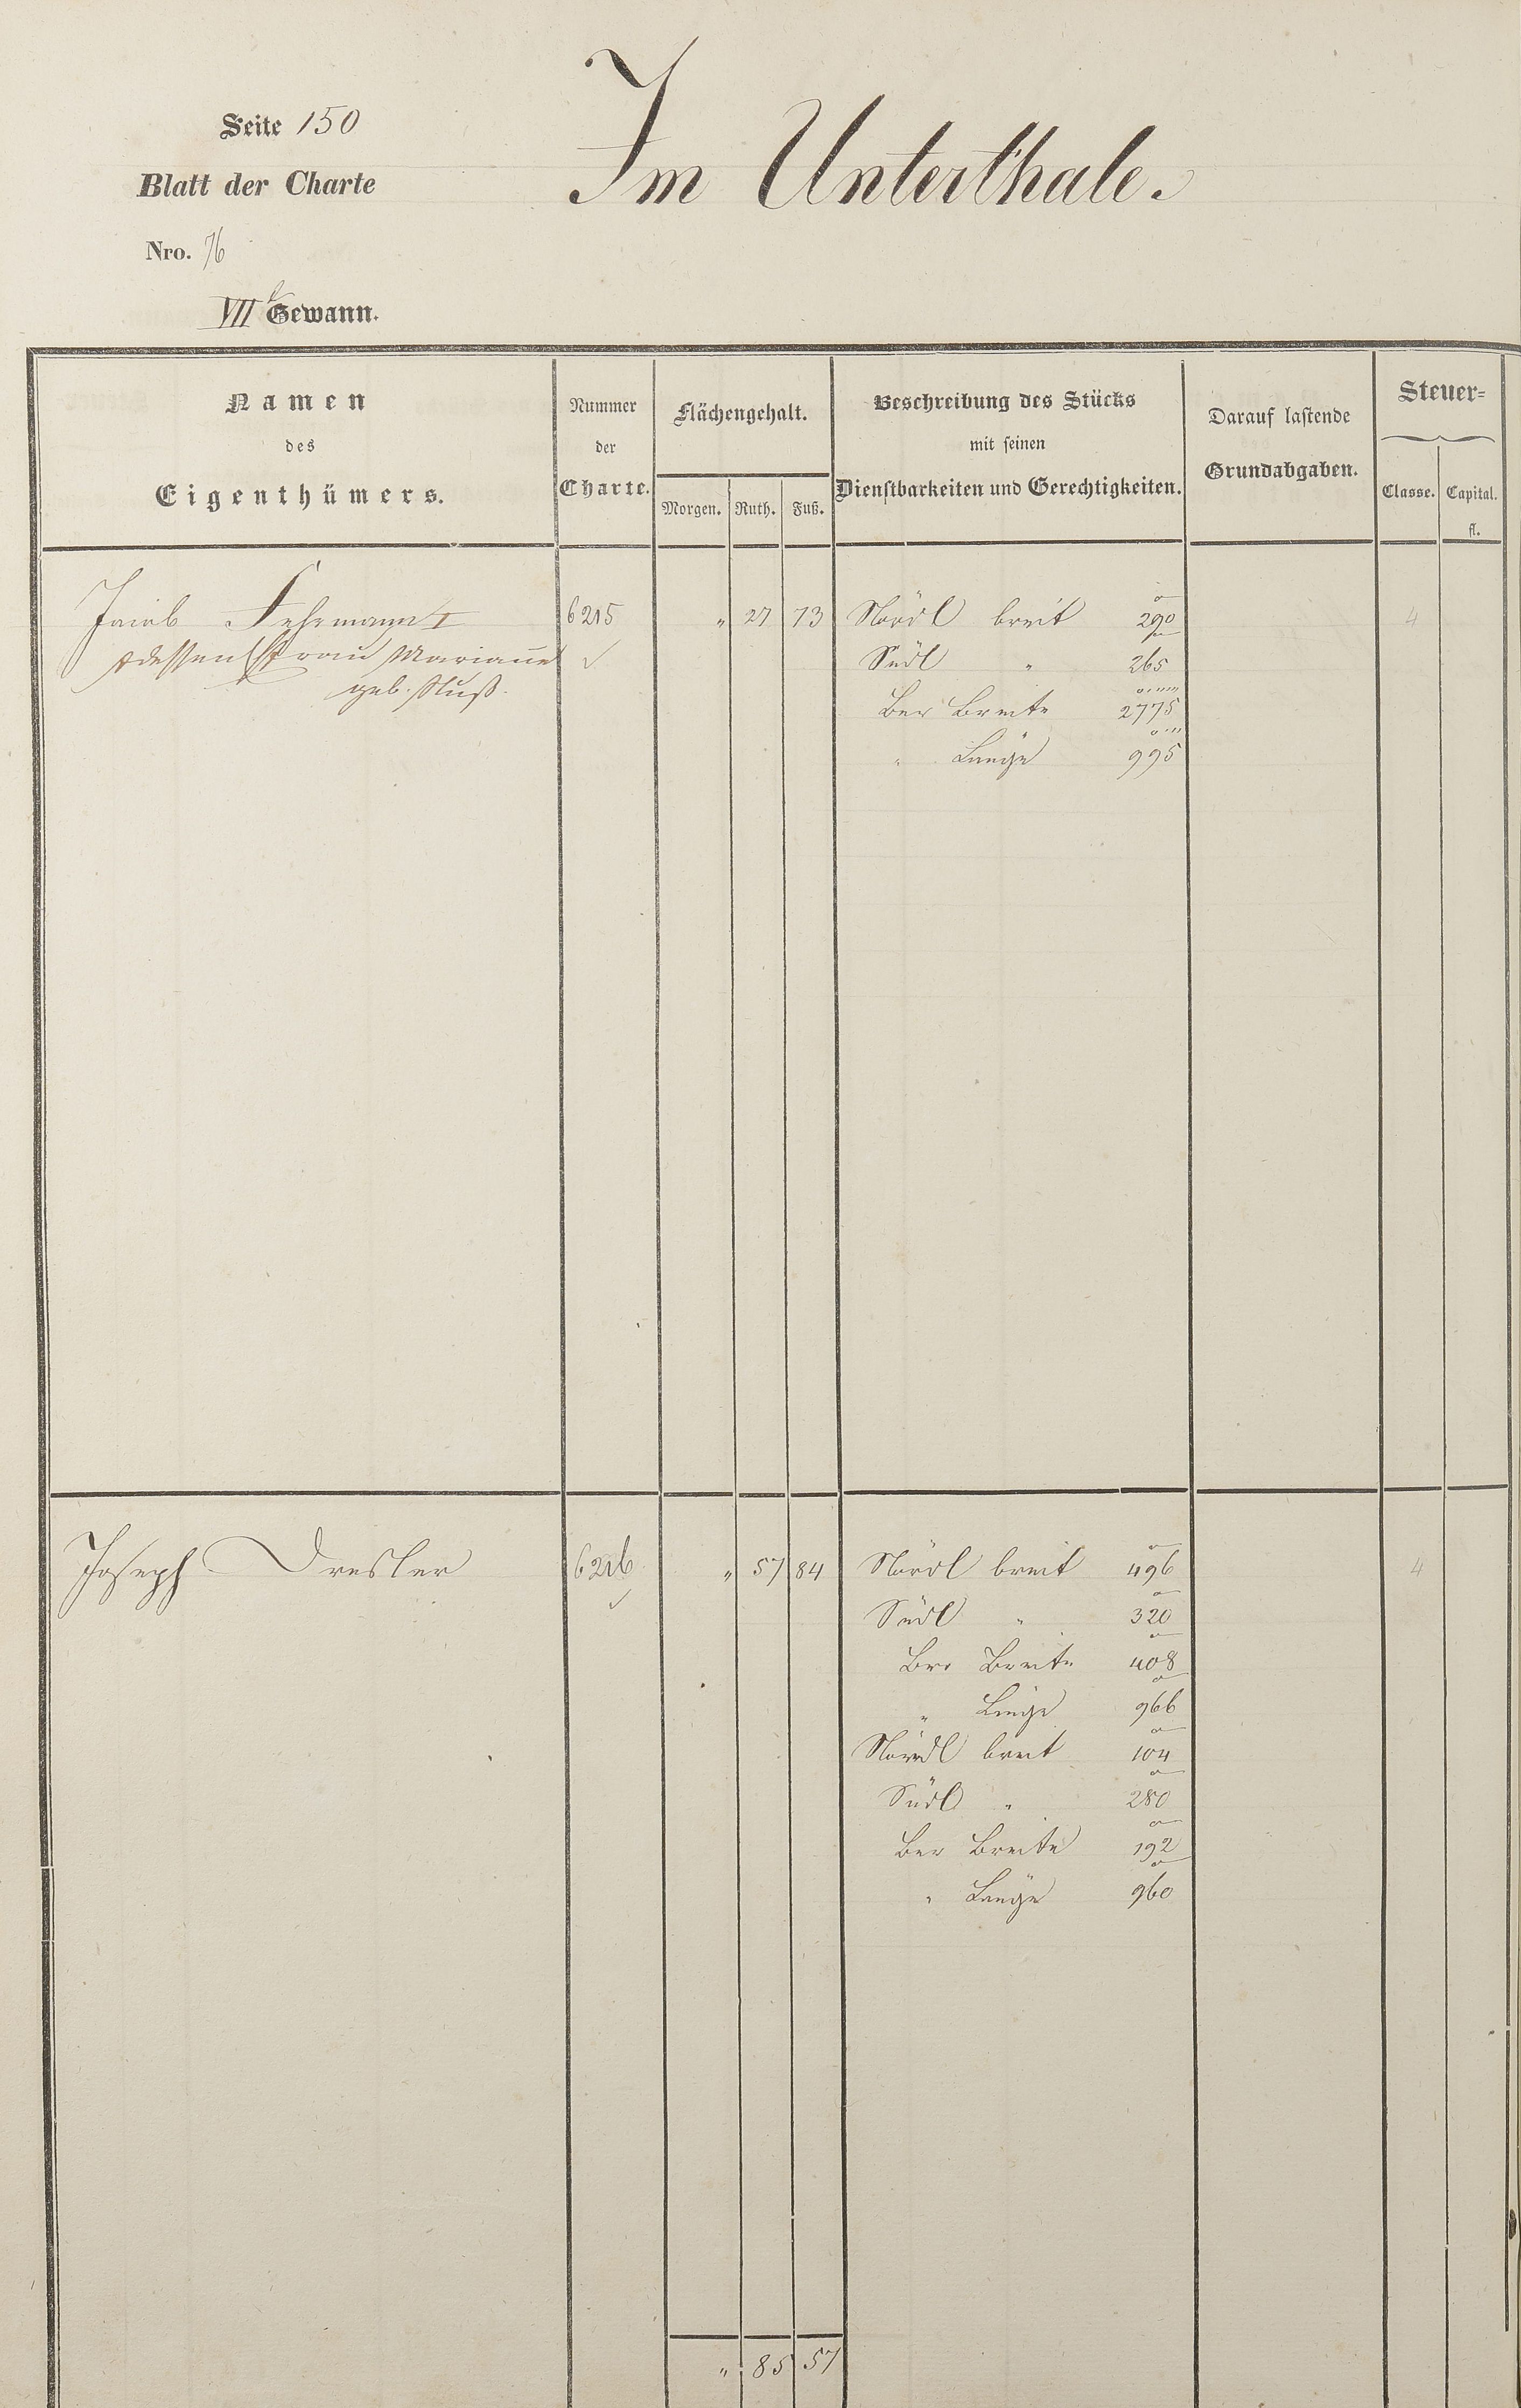 Seite 150
Blatt der Charte
Im Unterthale.
Nro. 76
VII Gewann.
Namen
des
Eigenthümers.
Nummer
der
Charte.
Flächengehalt.
Morgen. Ruth. Fuß.
Beschreibung des Stücks
mit seinen
Dienstbarkeiten und Gerechtigkeiten.
Darauf lastende
Grundabgaben.
Steuer=
Classe. Capital.
fl.
Jacob Fehrmann I 6215 " 27 73 Nördl breit 290 4
dessen Frau Mariane Südl " 265
geb.
Ber Breite 2775
" Länge 995
Joseph Dresler 6216 " 57 84 Nördl breit 496 4
Südl " 320
Ber Breite 408
" Länge 966
Nördl breit 104
Südl " 280
Ber Breite 192
" Länge 960
" 85 57